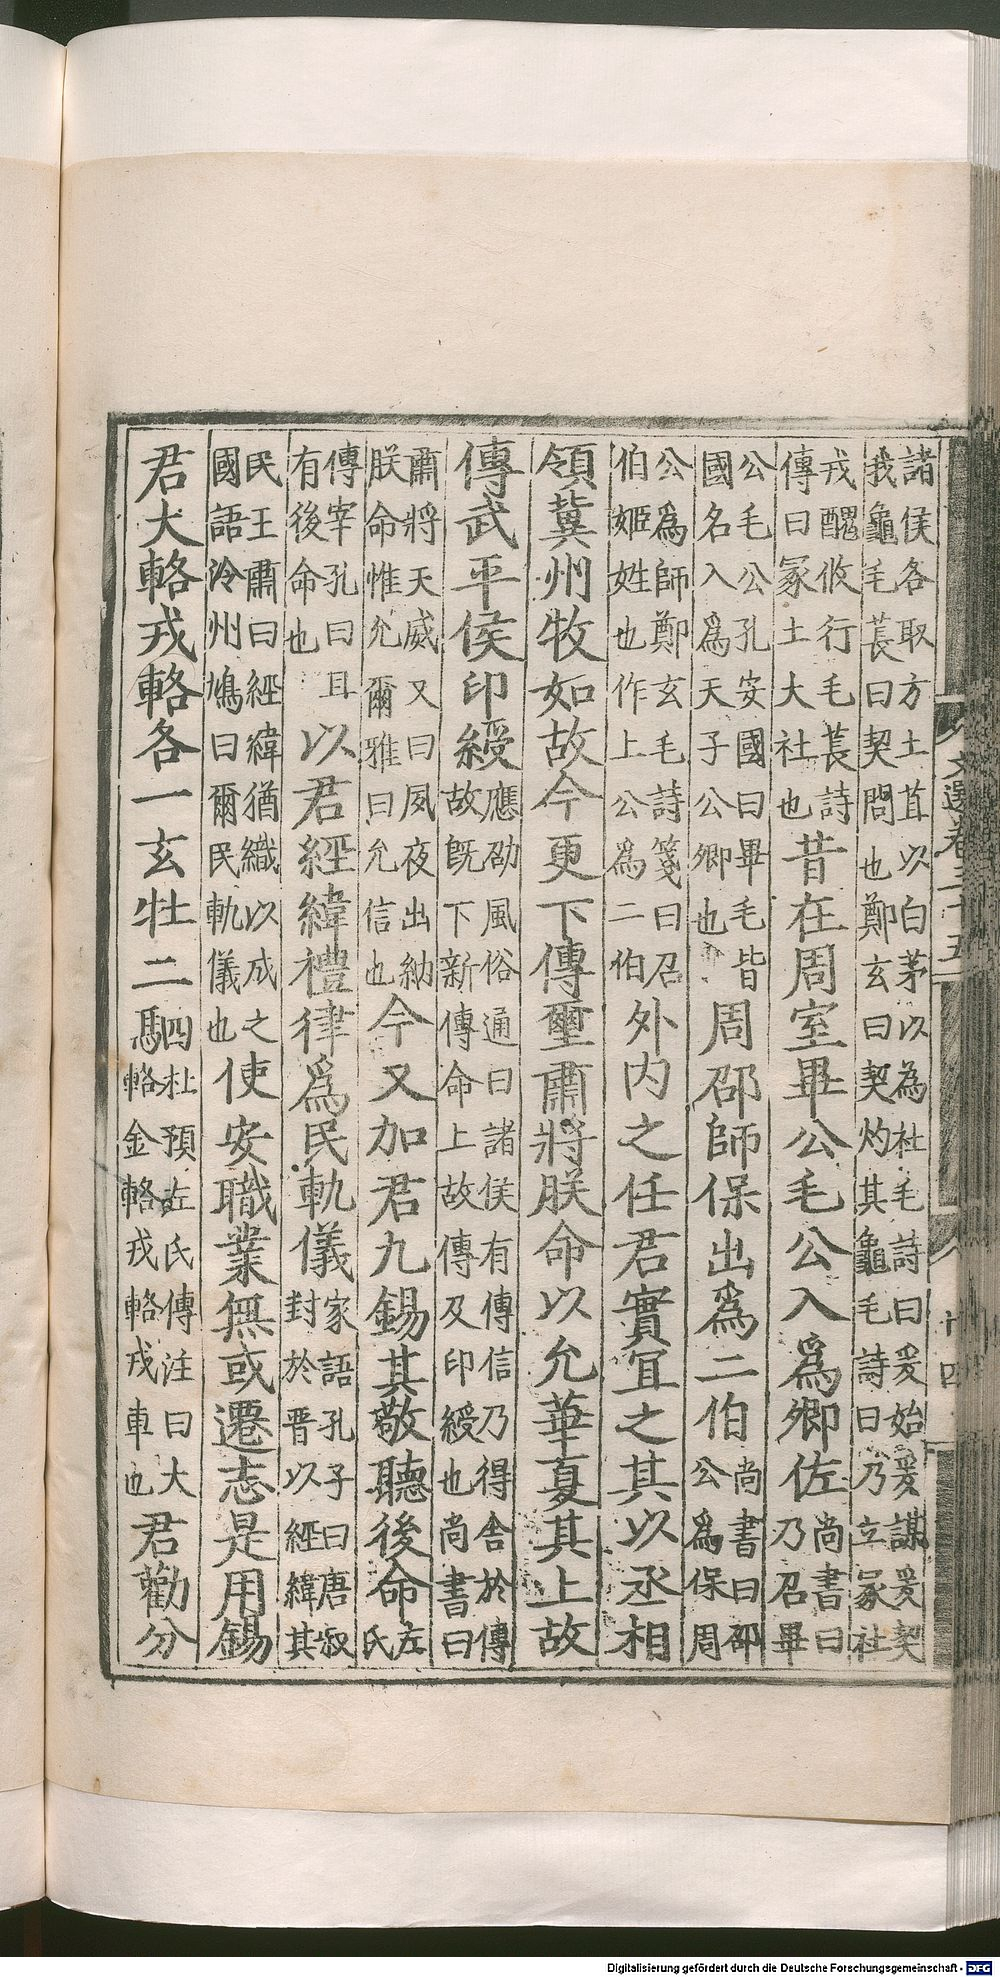 諸侯各取方土苴以白茅以為社毛詩曰爰始爰謀爰契
我龜毛萇曰契問也鄭玄曰契灼其龜毛詩曰乃立冢社
戎醜攸行毛萇詩
傳曰冢土大社也
昔在周室畢公毛公入爲卿佐
尚書曰
乃召畢
公毛公孔安國曰畢毛皆
國名入爲天子公卿也
周邵師保出爲二伯
尚書曰邵
公爲保周
公爲師鄭玄毛詩箋曰召
伯姬姓也作上公爲二伯
外内之任君實宜之其以丞相
領冀州牧如故今更下傳璽肅將朕命以允華夏其上故
傳武平侯印綬
應劭風俗通曰諸侯有傳信乃得舍於傳
故旣下新傳命上故傳及印綬也尚書曰
肅將天威又曰夙夜出納
朕命惟允爾雅曰允信也
今又加君九錫其敬聽後命
左
氏
傳宰孔曰耳
有後命也
以君經緯禮律爲民軌儀
家語孔子曰唐叔
封於晋以經緯其
民王肅曰經緯猶織以成之
國語泠州鳩曰爾民軌儀也
使安職業無或遷志是用錫
君大輅戎輅各一玄牡二駟
杜預左氏傳注曰大
輅金輅戎輅戎車也
君勸分
文選卷三十五
十四
Digitalisierung gefördert durch die Deutsche Forschungsgemeinschaft - DFG